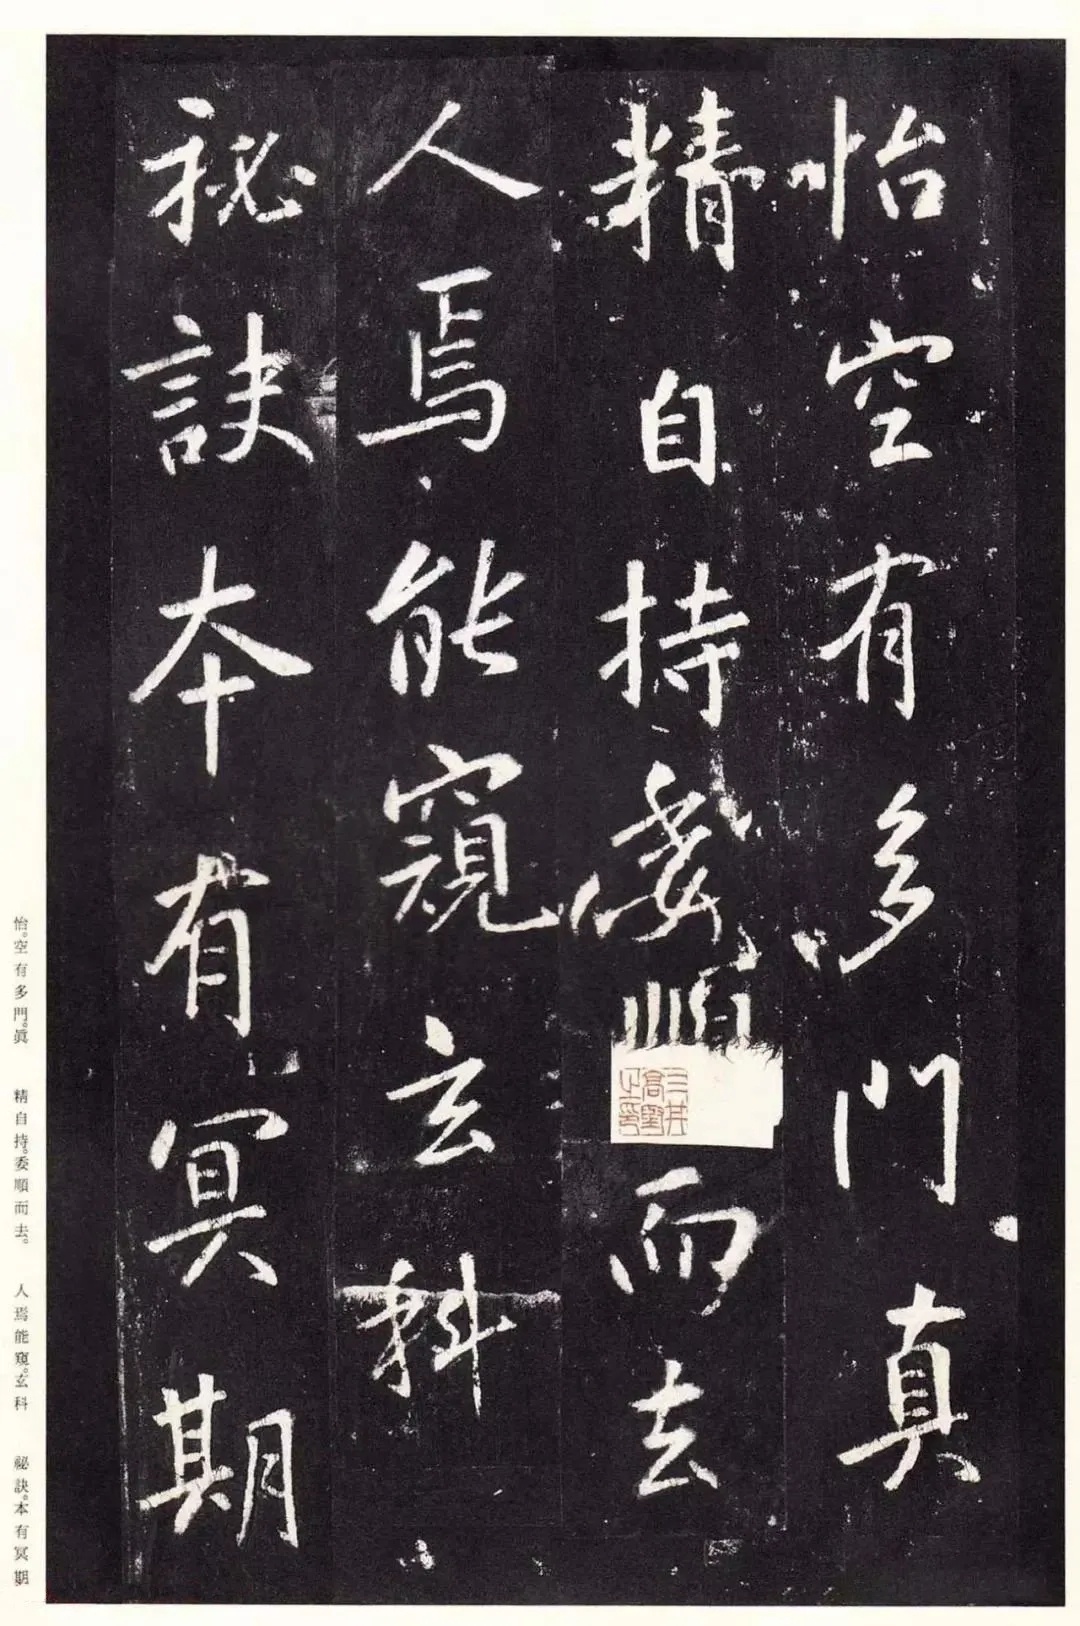 怡空有多門真
精自持委順而去
人焉能窺玄科
祕訣本有冥期
三井高堅之印
怡。空有多門。眞　精自持。委順而去。　人焉能窺。玄科　祕訣。本有冥期。